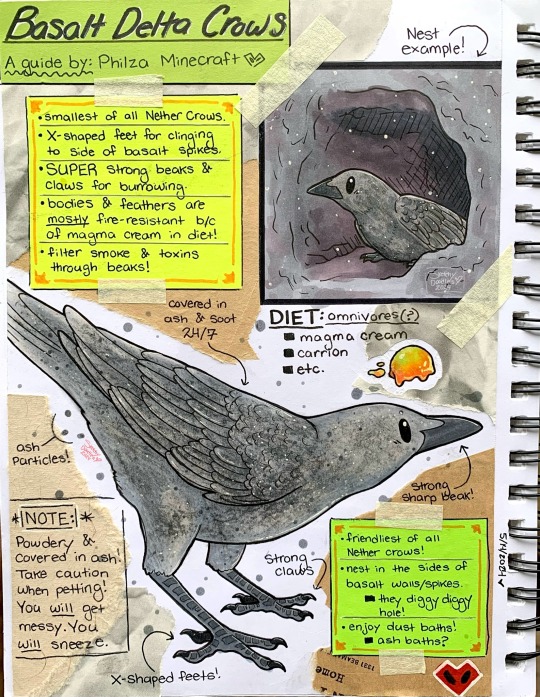 Basalt Delta Crows
A guide by: Philza Minecraft
Nest
example!
• smallest of all Nether Crows.
• X-shaped feet for clinging
to side of basalt spikes.
• SUPER strong beaks &
claws for burrowing.
• bodies & feathers are
mostly fire-resistant b/c
of magma cream in diet!
• filter smoke & toxins
through beaks!
covered in
ash & soot
24/7
DIET: omnivores(?)
■ magma cream
■ carrion
■ etc.
ash
Particles!
strong
sharp beak!
*NOTE:*
Powdery &
covered in ash!
Take caution
when petting.
You will get
messy. You
will sneeze.
Strong
claws
X-shaped feets!
• friendliest of all
Nether crows!
• nest in the sides of
basalt walls/spikes.
■ they diggy diggy
hole!
• enjoy dust baths!
■ ash baths?
5/4/2024
Home